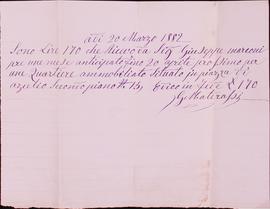 Adì 20 Marzo 1882
Sono Lire 170 che Ricevo da Sig Giuseppe marconi
pre une mese anticipato fino 20 aprile prossimo per
une Quartiere ammobiliato Situato in piazza di
azelio secondo piano N 15 dico in fede £ 170